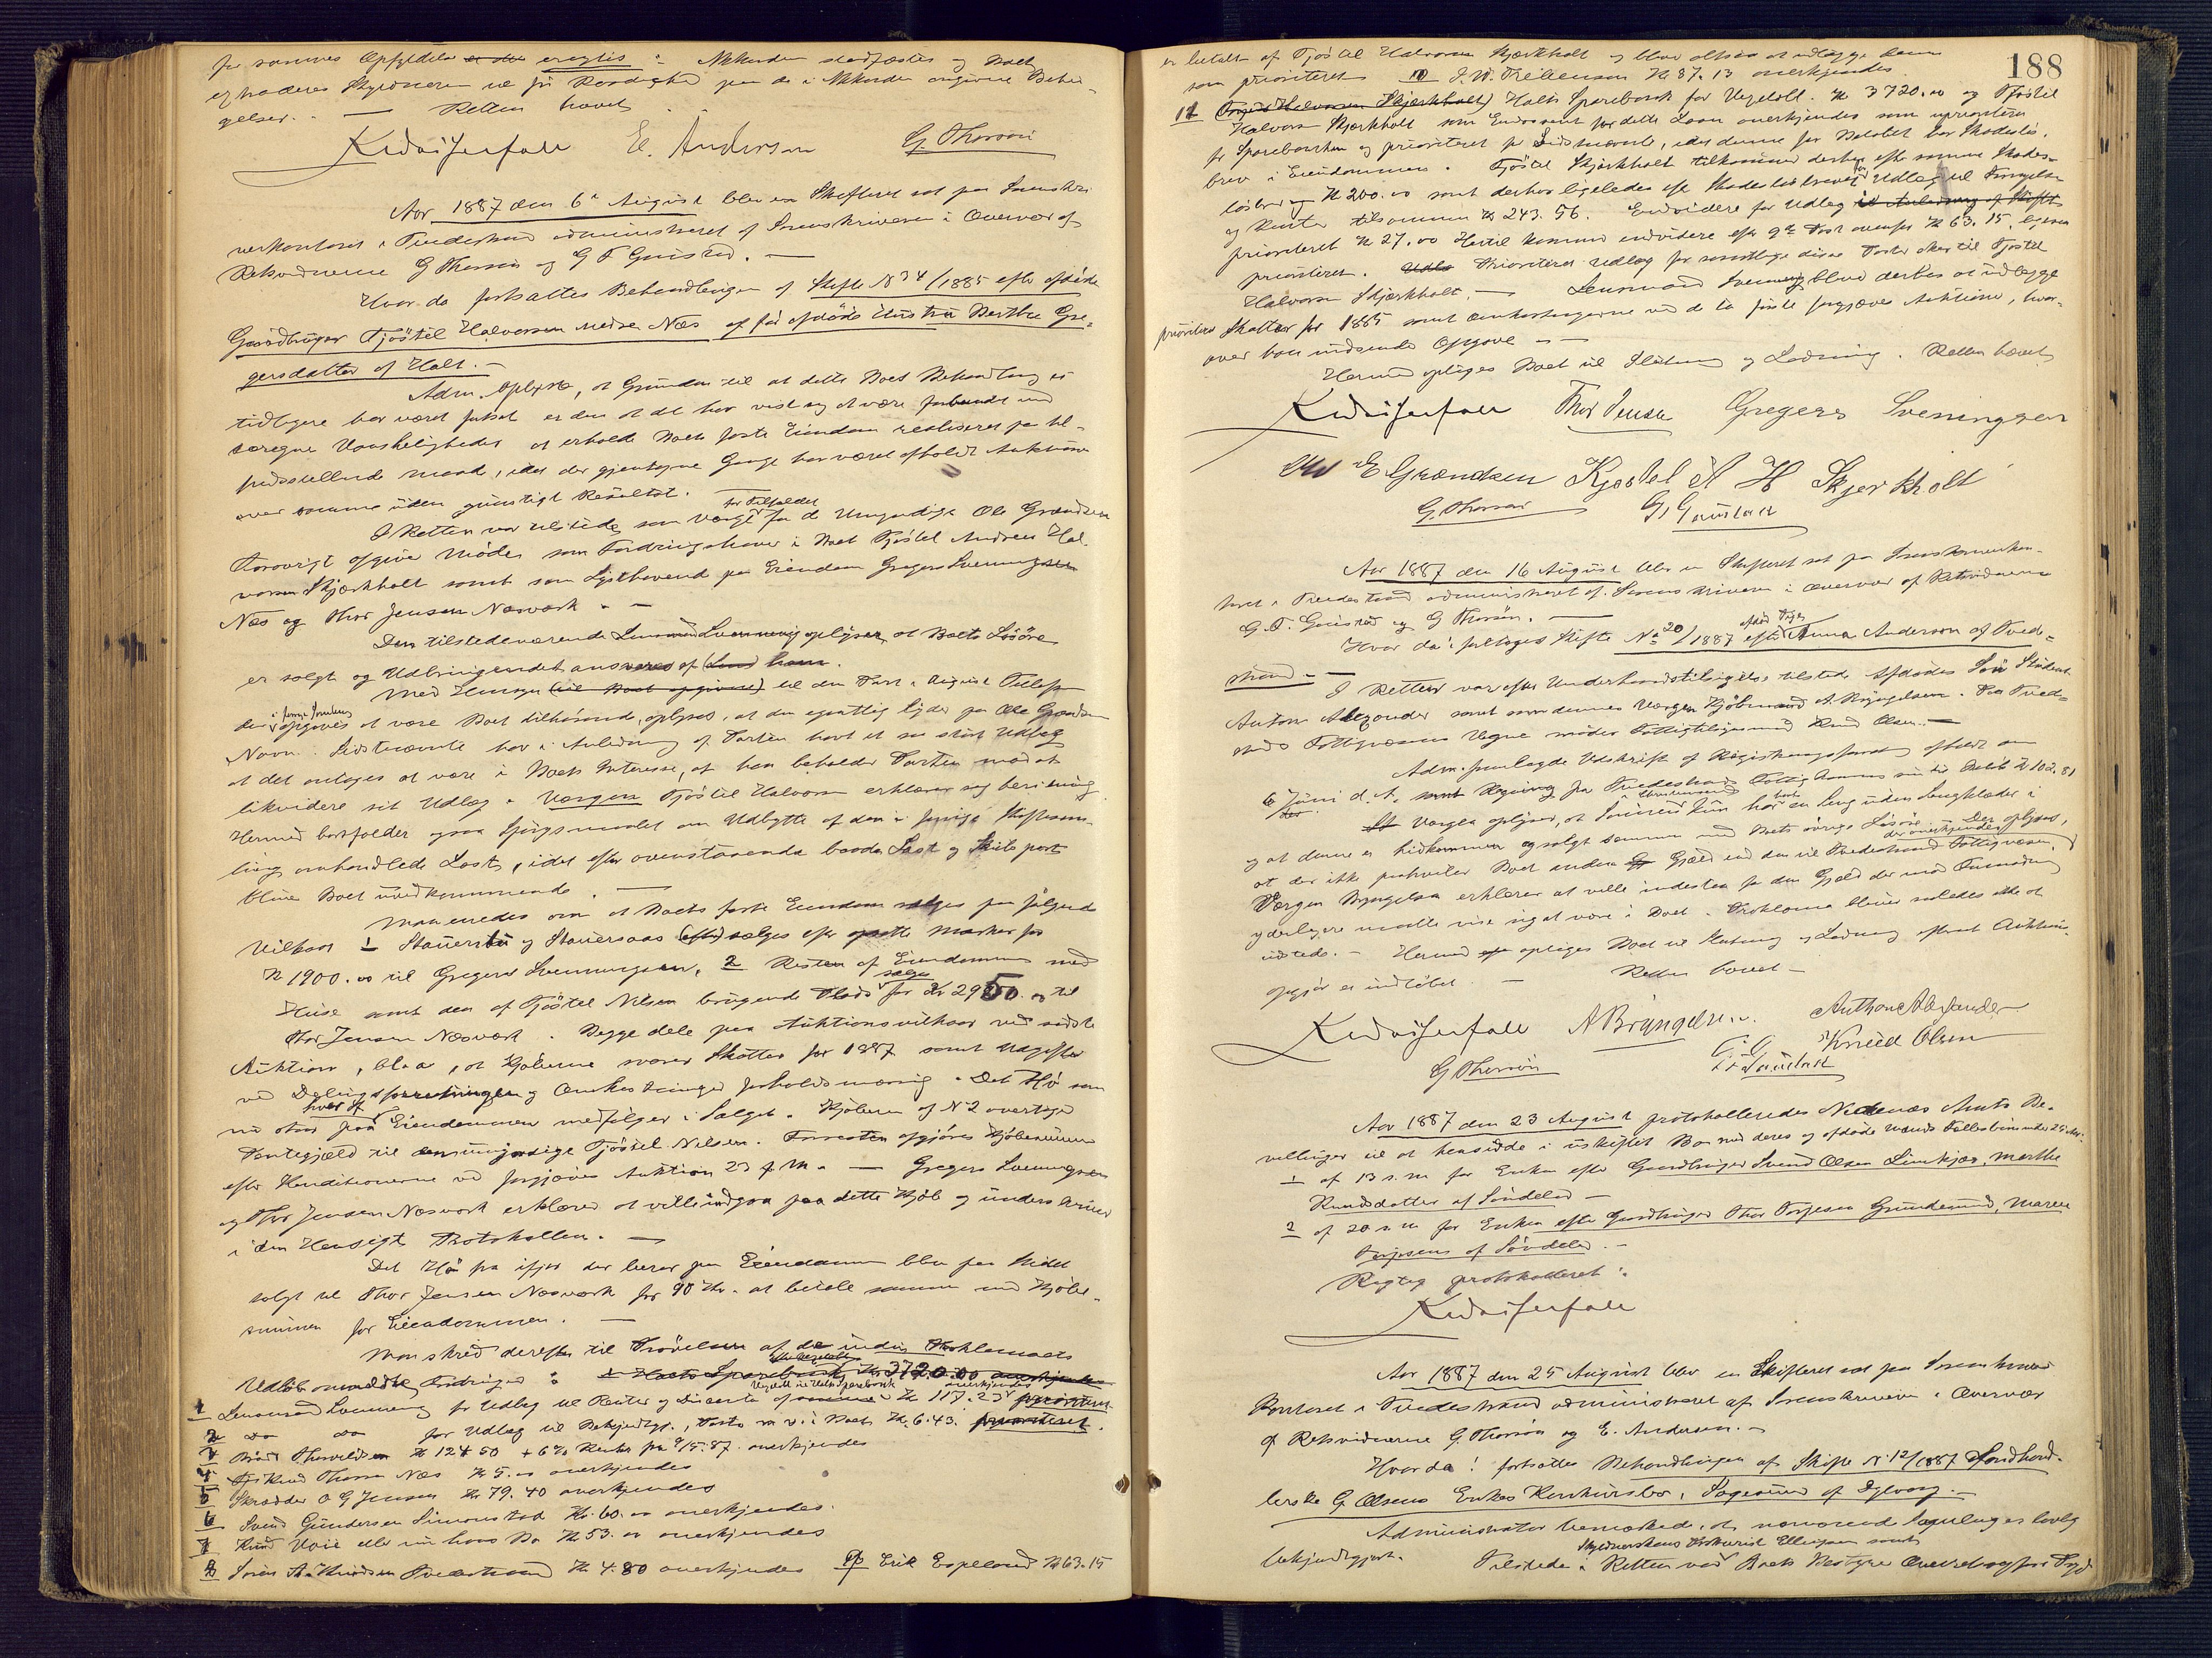 for sammes Opfyldelse : Akkorden stadfæstes og Boet
extraderes Skyldneren til fri Raadighed paa de i Akkorden angivne Betin-
gelser. — Retten hævet
E. Anderson G. Thorson
Aar 1887 den 6te August blev en Skifteret sat paa Sorenskri-
verkontoret i Tvedestrand administreret af Sorenskriveren i Overvær af
Retsvidnerne G Thorson og G F Gunstad. —
Hvor da fortsattes Behandlingen af Skifte No 34/1885 efter afdøde
Gaardbruger Tjøstel Halvorsen nedre Næs og før afdøde Hustru Berthe Gre-
gersdatter af Holt. —
Adm. oplyste, at Grunden til at dette Boes Behandling ei
tidligere har været sluttet er den at det har vist sig at være forbundet med
særegne Vanskeligheder at erholde Boets faste Eiendom realiseret paa til-
fredsstillende Maade, idet der gjentagne Gange har været afholdt Auktion
over samme uden gunstigt Resultat.
I Retten var tilstede som Værge for Tilfældet for de Umyndige Ole Grændsen
Forøvrigt møder som Fordringshaver i Boet Tjøstel Andreas Hal-
vorsen Skjærkholt samt som Lysthavende paa Eiendom Gregers Svenningsen
Næs og Thor Jensen Næsværk. —
Den tilstedeværende Lensmand Svenning oplyser at Boets Løsøre
er solgt og Udbringendet ansvares af ham.
Med Hensyn til den Part i August Tellefsen
der i forrige Samling opgaves at være Boet tilhørende, oplyses, at den egentlig lyder paa Ole Grændsens
Navn. Sidstnævnte har i Anledning af Parten havt et saa stort Udlæg
at det antages at være i Boets Interesse, at han beholder Parten mod at
likvidere sit Udlæg. Værgen Tjøstel Halvorsen erklærer sig berettiget
Hermed bortfalder ogsaa Spørgsmaalet om Udbytte af den i forrige Skiftesam-
ling omhandlede Last, idet efter ovenstaaende baade Last og Skibspart
blive Boet uvedkommende. —
Man enedes om at Boets faste Eiendom sælges paa følgende
Vilkaar 1 Stauersbu og Stauersaas sælges efter opsatte Mærker for
Kr 1900.00 til Gregers Svenningsen, 2 Resten af Eiendommen med
Huse samt den af Tjøstel Nilsen brugende Plads sælges for Kr 2950.00 til
Thor Jensen Næsværk. Begge dele paa Auktionsvilkaar ved sidste
Auktion, bl. a, at Kjøberne svarer Skatter for 1887 samt Udgifter
ved Delingsforretningen og Omkostninger forholdsmæssig. Det Hø som
nu staar paa hver af Eiendommen medfølger i Salget. Kjøberen af No 2 overtager
Pantegjæld til den umyndige Tjøstel Nilsen. Forresten opgjøres Kjøbesummen
efter Konditionerne ved forgjæves Auktion 23 f. M. — Gregers Svenningsen
og Thor Jensen Næsværk erklærer at ville indgaa paa dette Kjøb og underskriver
i den Hensigt Protokollen. —
Det Hø fra ifjor der beror paa Eiendommen blev paa Stedet
solgt til Thor Jensen Næsværk for 90 Kr. at betale sammen med Kjøbe-
summen for Eiendommen. —
Man skred derefter til Prøvelsen af de inden Proklamaets
Udløb anmeldte Fordringer : 1 Holts Sparebank Kr. 3720.00 anerkjendes
1 Lensmand Svenning for Udlæg til Renter og Discento af Vegeldt til Holts Sparebank Kr 117.23 anerkjendes prioriteret
2 Do Do for Udlæg til Bekjendtgj., Porto m.v. i Boet Kr. 6.43. prioriteret.
3 Brødr Thorvaldsen Kr 124 50 + 6% Rente fra 9/5.87. anerkjendes
4 Thorsen Næs Kr 5.00 anerkjendes
5 Skrædder O G Jensen Kr. 79.40 anerkjendes
6 Svend Gundersen Simonstad Kr. 60.00 anerkjendes.
7 Knud Vaie eller nu hans Bo Kr 53.00 anerkjendes
8 Søren A. Knudsen Tvedestrand Kr 4.80 anerkjendes 9 Erik Espeland Kr 63.15
188
er betalt af Tjøstel Halvorsen Skjærkholt og blive altsaa at udlægge ham
som prioriteret 10 J. W. Thelienson Kr 87.13 anerkjendes
11 Holts Sparebank for Vegeldt. Kr 3720.00 og Tjøstel
Halvorsen Skjærkholt som Endossent for dette Laan anerkjendes som uprioriteret
for Sparebanken og prioriteret for Sidstnævnte, idet denne for Beløbet har Skadesløs-
brev i Eiendommen. Tjøstel Skjærkholt tilkommer derhos efter samme Skades-
løsbrev Kr 200.00 samt derhos ligeledes efter Skadesløsbrevet for Udlæg til Tvangsl.
og Rente tilsammen Kr 243.56. Endvidere for Udlæg i Anledning af Skiftet
prioriteret Kr 27.00 Hertil kommer endvidere efter 9de Post ovenfor Kr 63.15, ligesaa
prioriteret. Prioriteret Udlæg for samtlige disse Poster sker til Tjøstel
Halvorsen Skjærkholt. — Lensmand Svenning bliver derhos at udlægge
prioriteret Skatter for 1885 samt Omkostningerne ved de to sidste forgjæves Auktioner, hvor-
over han indsender Opgave —
Hermed optages Boet til Slutning og Lodning. Retten hævet
Thor Jensen Gregers Sveningsen
E Grændsen Kjøstel A H Skjerkholt
G. Thorson G. Gunstad
Aar 1887 den 16 August blev en Skifteret sat paa Sorenskriverkon-
toret i Tvedestrand administreret af Sorenskriveren i Overvær af Retsvidnerne
G. F. Gunstad og G Thorson. —
Hvor da : foretoges Skifte No 20/1887 efter afdød Pige Anna Anderson af Tvede-
strand. —
I Retten var efter Underhaandstilsigelse tilstede Afdødes Søn Student
Anton Alexander samt som dennes Værge Kjøbmand A. Bryngelsen. Paa Tvede-
strands Fattigvæsens Vegne møder Fattigtilsynsmand Knud Olsen. —
Adm. fremlagde Udskrift af Registreringsforretning afholdt den
6 Juni d. A. samt Regning fra Tvedestrands Fattigkommission til Beløb Kr 102.81
Værgen oplyser, at Sønnen i Christiansand kun har havt en Seng uden Sengklæder i
og at denne er hidkommen og solgt sammen med Boets øvrige Løsøre. Der oplyses,
at der ikke paahviler Boet anden Gjæld end den til Tvedestrands Fattigvæsen, der anerkjendes
Værgen Bryngelsen erklærer at ville indestaa for den Gjæld der mod Formodning
yderligere maatte vise sig at være i Boet. Proklama bliver saaledes ikke at
udstede. — Hermed optages Boet til Slutning og Lodning efterat Auktions-
opgjør er indløbet. — Retten hævet —
A Bryngelsen. Anthon Alexander
G Thorson G F Gunstad Knud Olsen
Aar 1887 den 23 August protokolleredes Nedenæs Amts Be-
villinger til at hensidde i uskiftet Bo med deres og afdøde Mænds Fællesbørn
1 af 13 s. M. for Enken efter Gaardbruger Svend Olsen Limkjær, Marthe
Knudsdatter af Søndeled —
2 af 20 s. M. for Enken efter Gaardbruger Thor Torjesen Grundesund, Maren
Torjesens af Søndeled. —
Rigtig protokolleret :
Aar 1887 den 25 August blev en Skifteret sat paa Sorenskriver-
kontoret i Tvedestrand administreret af Sorenskriveren i Overvær
af Retsvidnerne G. Thorson og E. Andersen. —
Hvor da : fortsattes Behandlingen af Skifte No 12/1887 Landhand-
lerske G. Olsens Enkes Konkursbo, Sagesund af Dybvaag. —
Administrator bemærkede, at nærværende Samling er lovlig
bekjendtgjort. Tilstede i Retten var Skyldnerskens Prokurist Ellefsen samt Boets Bestyrer Overretssagfører